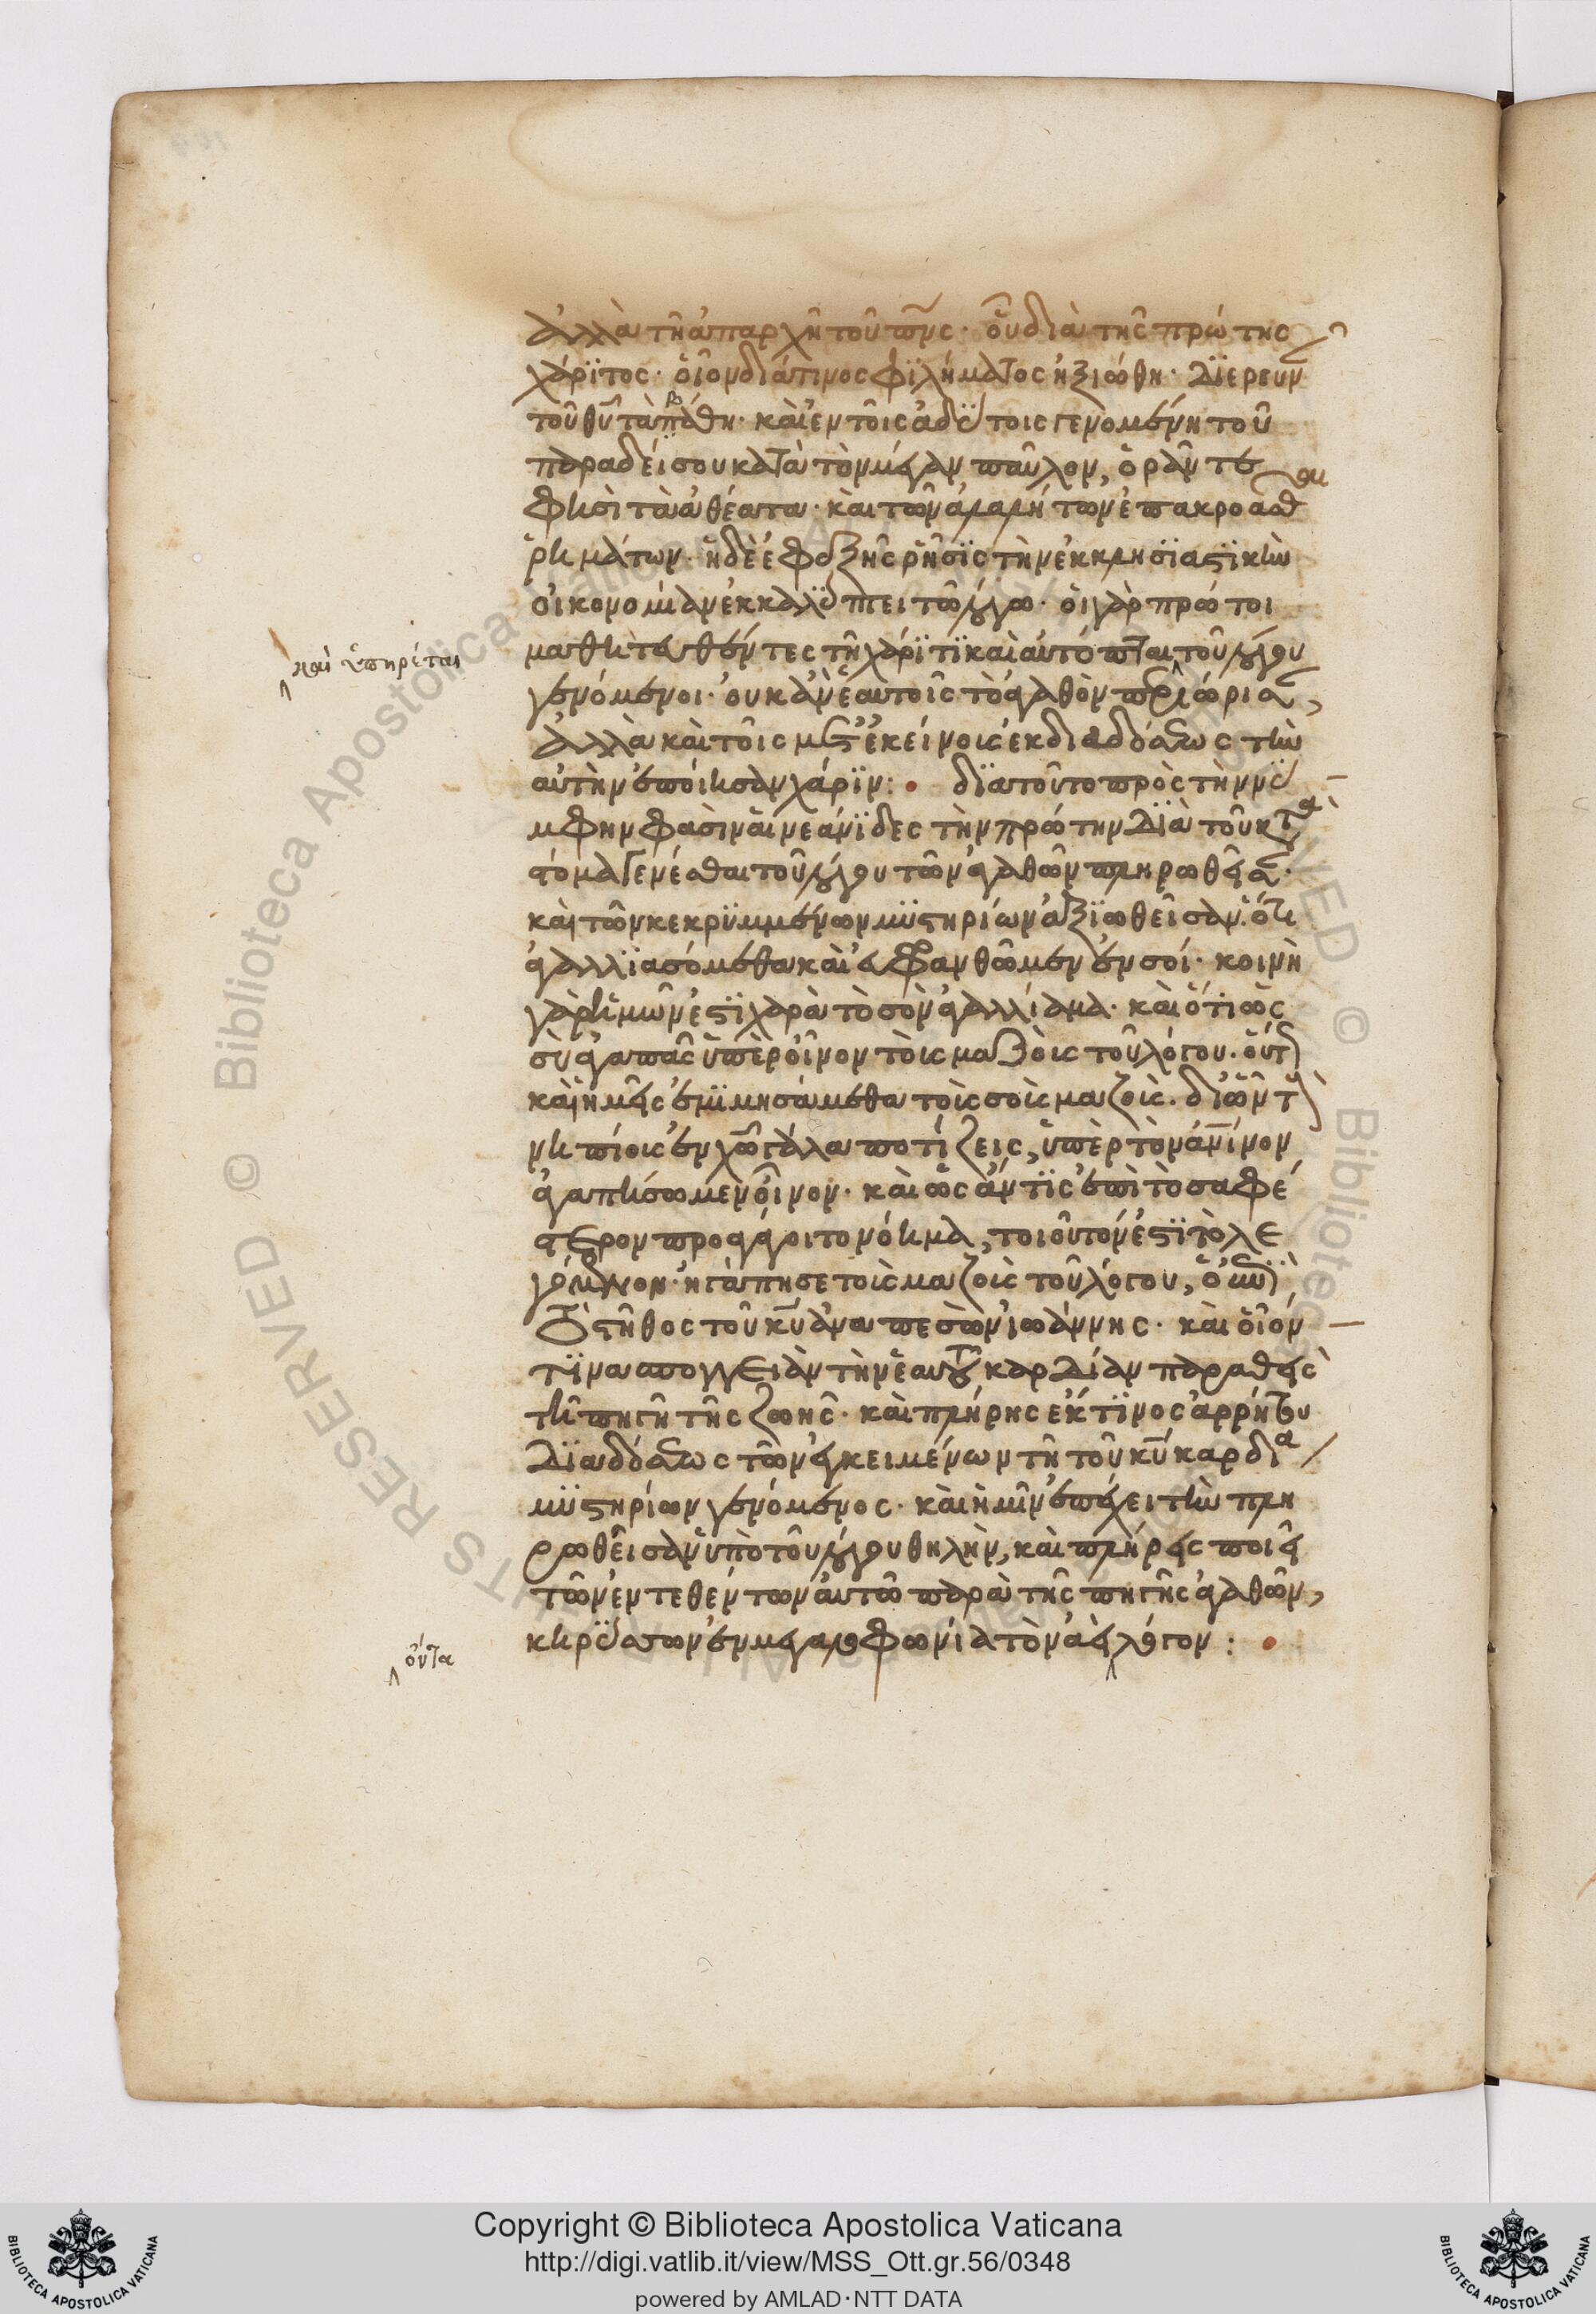 ἀλλὰ τῆ ἀπαρχῆ τοῦ πνς· οὗ διὰ τῆς πρώτης
χάριτος· οἷον διά τινος φιλήματος ἠξιώθη· διερευν
τοῦ θυ τὰ βάθη· καὶ ἐν τοῖς ἀδύτοις γενομένη τοῦ
παραδείσου κατὰ τὸν μέγαν παῦλον, ὁρᾶν τε
φησὶ τὰ ἀθέατα· καὶ τῶν ἀλαλήτων ἐπακροᾶσθαι
ῥημάτων· ἡ δὲ ἐφεξῆς ῥῆσις τὴν ἐκκλησιαστικὴν
οἰκονομίαν ἐκκαλύπτει τῶ λόγω· οἱ γὰρ πρῶτοι
μαθητευθέντες τῆ χάριτι καὶ αὐτόπται τοῦ λόγου
καὶ ὑπηρέται
γενόμενοι· οὐκ ἀν ἑαυτοῖς τὸ ἀγαθὸν περιώρισαν,
ἀλλὰ καὶ τοῖς μετ ἐκείνοις ἐκ διαδόσεως τὴν
αὐτὴν ἐποίησαν χάριν: διατοῦτο πρὸς τὴν νύ
μφην φασὶν αἱ νεάνιδες τὴν πρώτην διὰ τοῦ κατὰ
στόμα γενέσθαι τοῦ λόγου τῶν ἀγαθῶν πληρωθεῖσαν·
καὶ τῶν κεκρυμμένων μυστηρίων ἀξιωθεῖσαν· ὅτι
ἀγαλλιασόμεθα καὶ εὐφρανθῶμεν ἐν σοί· κοινὴ
γὰρ ἡμῶν ἐστι χαρὰ τὸ σὸν ἀγαλλίαμα· καὶ ὅτι ὡς
σὺ ἀγαπᾶς ὑπὲρ οἶνον τοὶς μαζοὶς τοῦ λόγου· οὕτ
καὶ ἡμεῖς ἐμιμησάμεθα τοὶς σοὶς μαζοὶς· δι ὧν τ
νηπίοις ἐν χω γάλα ποτίζεις, ὑπὲρ τὸν ἀνινον
ἀγαπήσωμεν οἶνον· καὶ ὡς ἄν τις ἐπὶ τὸ σαφέ
στερον προαγάγοι τὸ νόημα, τοιοῦτόν ἐστι τὸ λε
γόμενον· ἠγάπησε τοὶς μαζοὶς τοῦ λόγου, ὁ ἐπὶ
τὸ στῆθος τοῦ κυ ἀναπεσὼν ἰωάννης· καὶ οἷόν
τινα σπογγειὰν τὴν ἑαυτοῦ καρδίαν παραθεὶς
τῆ πηγῆ τῆς ζωῆς· καὶ πλήρης ἐκ τινος ἀρρήτου
διαδόσεως τῶν ἐγκειμένων τῆ τοῦ κυ καρδία
μυστηρίων γενόμενος· καὶ ἡμῖν ἐπέχει τὴν πλη
ρωθεῖσαν ὑπὸ τοῦ λόγου θηλὴν, καὶ πλήρεις ποιεῖ
τῶν ἐντεθέντων αὐτῶ παρὰ τῆς πηγῆς ἀγαθῶν,
κηρύσσων ἐν μεγαλοφωνία τὸν ἀεὶ λόγον:
ὄντα
Copyright © Biblioteca Apostolica Vaticana
http://digi.vatlib.it/view/MSS_Ott.gr.56/0348
powered by AMLAD·NTT DATA